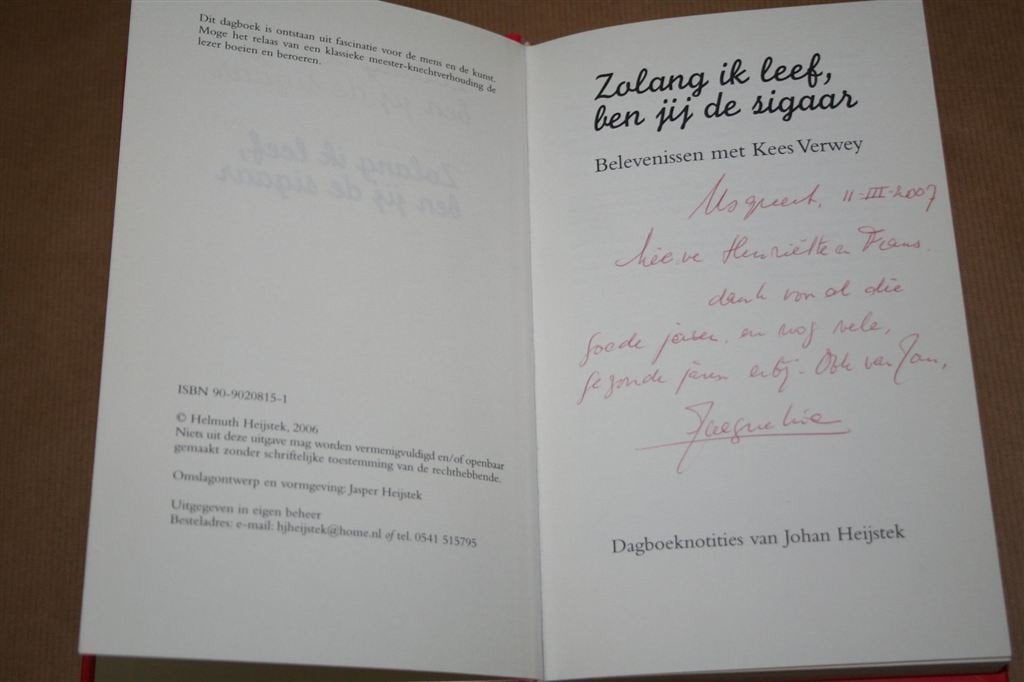 Dit dagboek is ontstaan uit fascinatie voor de mens en de kunst.
Moge het relaas van een klassieke meester-knechtverhouding de
lezer boeien en beroeren.
ISBN 90-9020815-1
© Helmuth Heijstek, 2006
Niets uit deze uitgave mag worden vermenigvuldigd en/of openbaar
gemaakt zonder schriftelijke toestemming van de rechthebbende.
Omslagontwerp en vormgeving: Jasper Heijstek
Uitgegeven in eigen beheer
Besteladres: e-mail: hjheijstek@home.nl of tel. 0541 515795
Zolang ik leef,
ben jij de sigaar
Belevenissen met Kees Verwey
11-III-2007
Lieve Henriëtte en Frans.
dank voor al die
goede jaren en nog vele,
gezonde jaren erbij. Ook van Jan,
Jacqueline
Dagboeknotities van Johan Heijstek